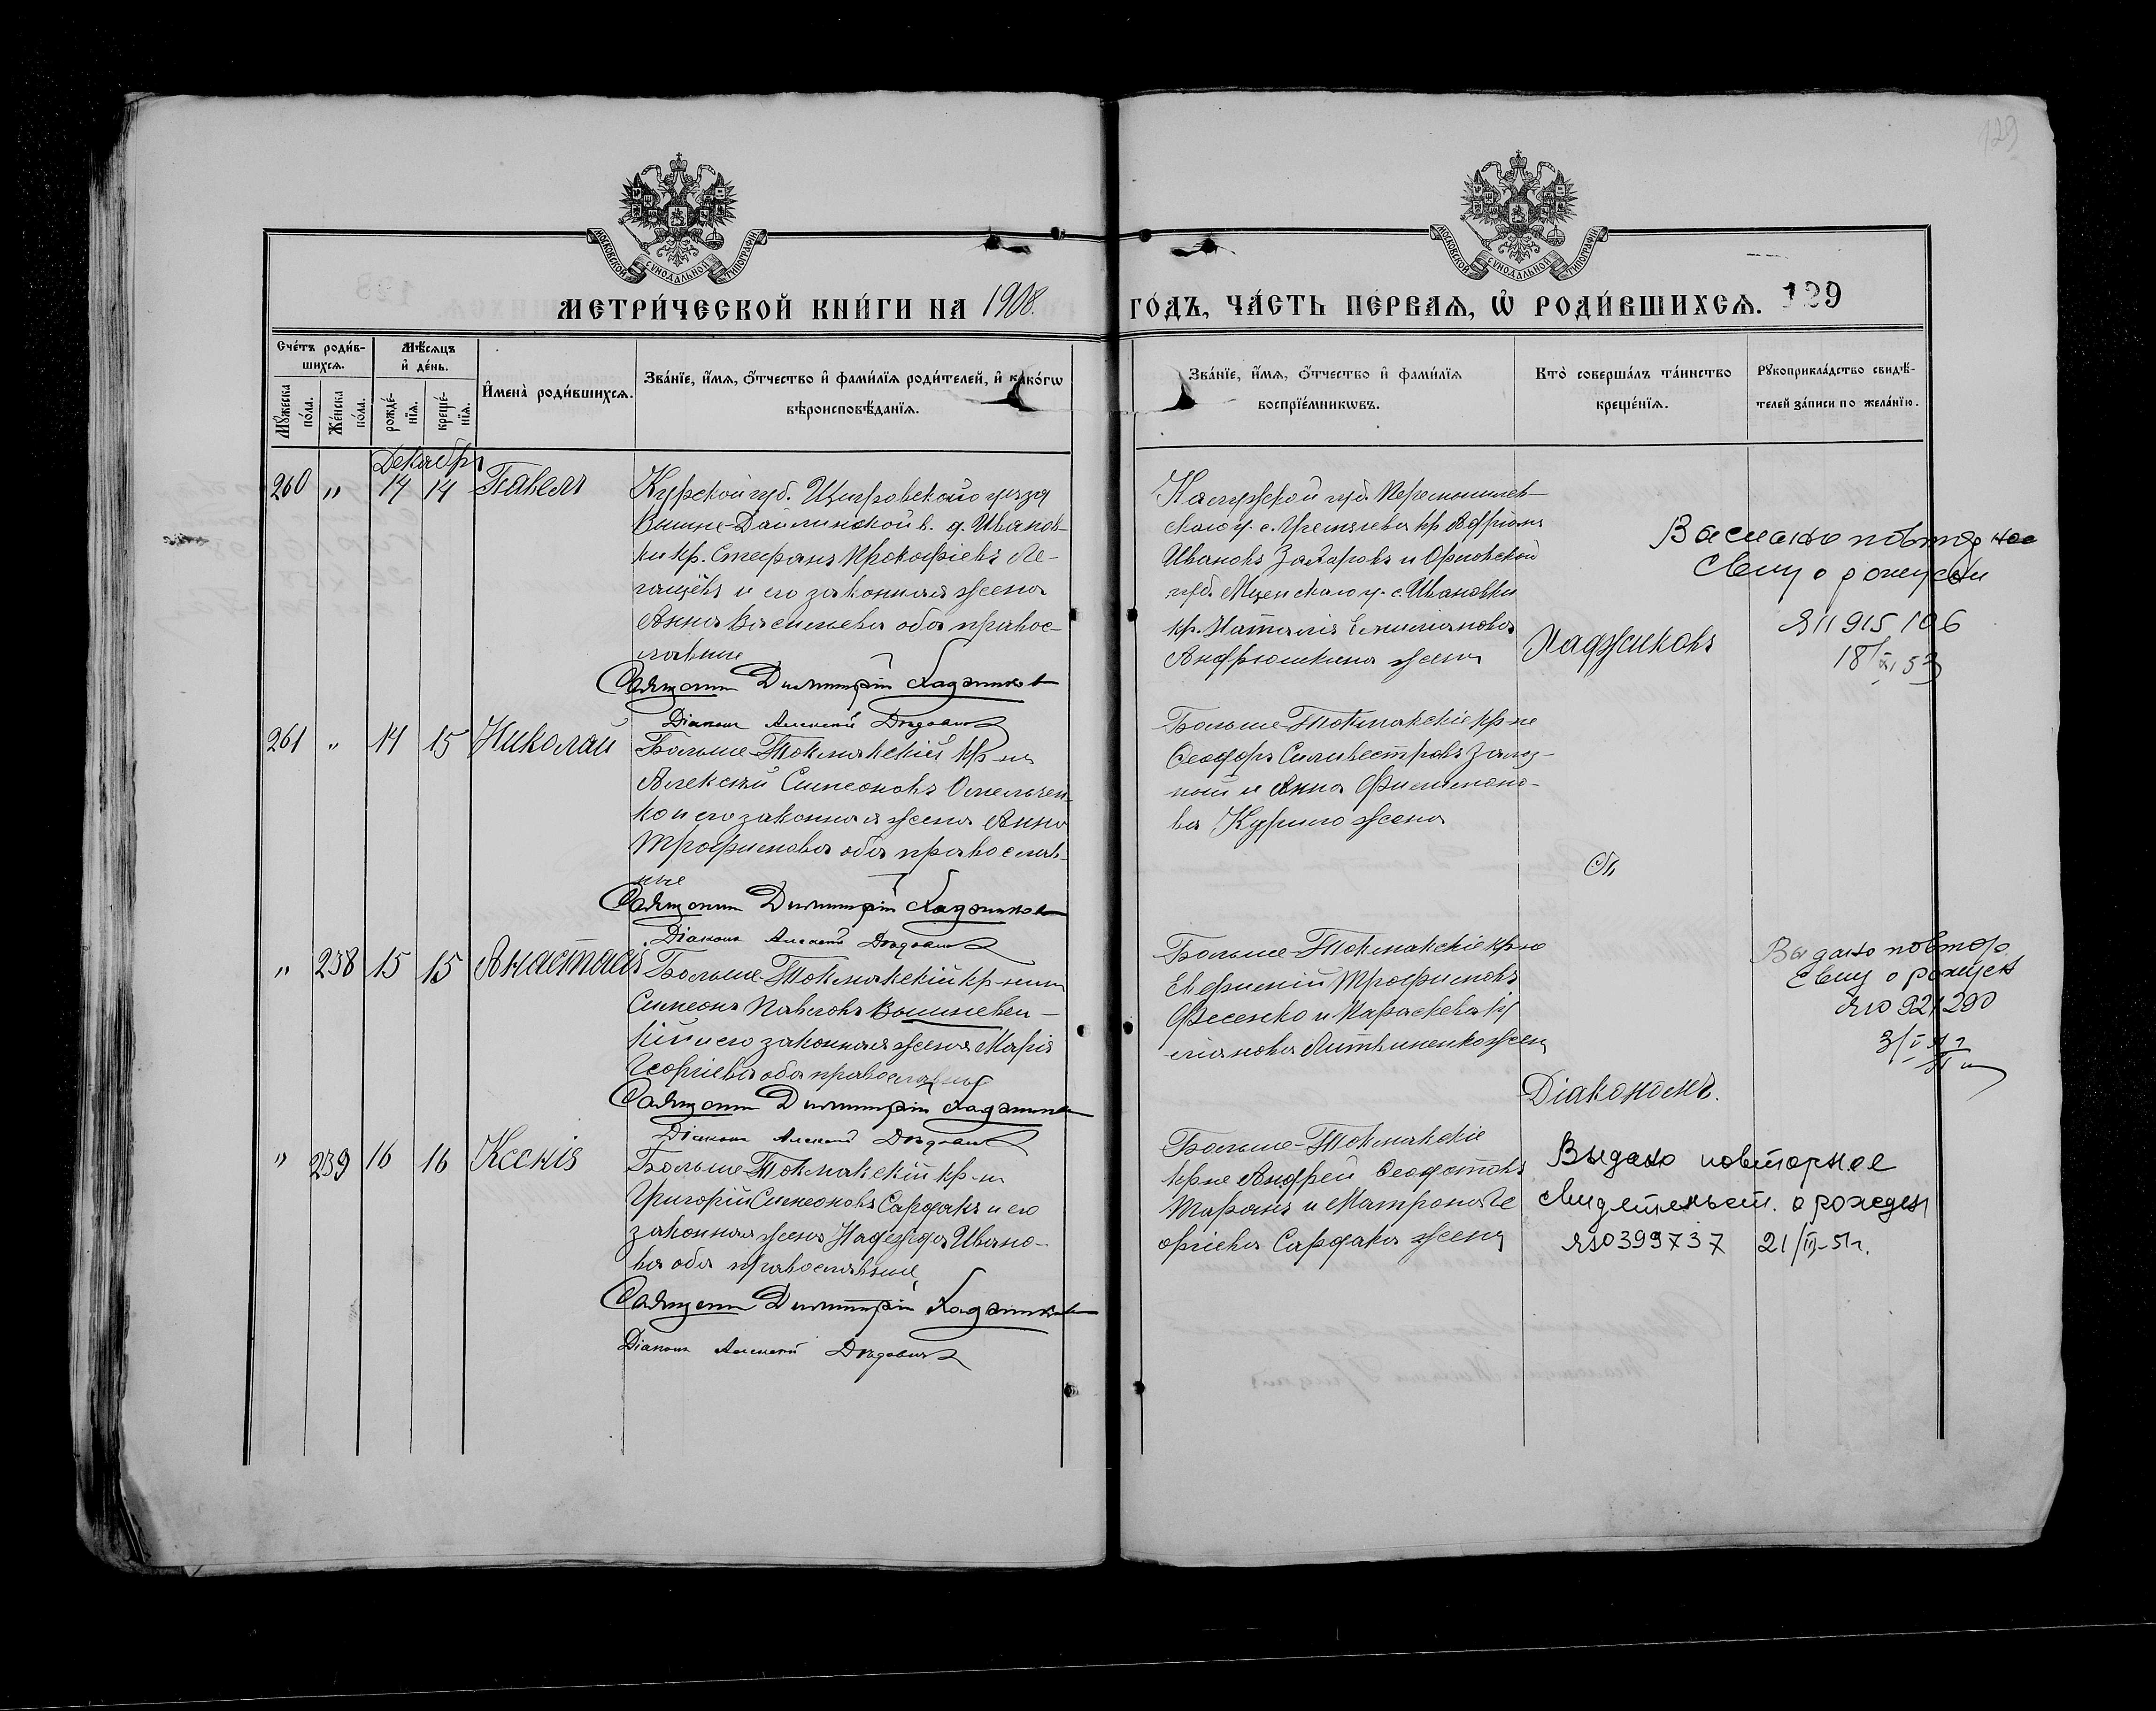 129
МОСКОВСКОЙ СУНОДАЛЬНОЙ ТИПОГРАФІИ
МОСКОВСКОЙ СУНОДАЛЬНОЙ ТИПОГРАФІИ
МЕТРИ́ЧЕСКОЙ КНИ́ГИ НА 1908. ГО́ДЪ, ЧА́СТЬ ПЕ́РВАѦ, Ѡ҆ РОДИ́ВШИХСѦ. 129
Сче́тъ роди́в-
шихсѧ.
Мѣ́сѧцъ
и҆ де́нь.
Мꙋ́жеска
по́ла.
Же́нска
по́ла.
рожде́-
нїѧ.
креще́-
нїѧ.
И҆мена̀ роди́вшихсѧ.
Зва́нїе, и҆́мѧ, ѻ҆́тчество и҆ фами́лїѧ роди́телей, и҆ како́гѡ
вѣроисповѣ́данїѧ.
Зва́нїе, и҆́мѧ, ѻ҆́тчество и҆ фами́лїѧ
воспрїе́мникѡвъ.
Кто̀ соверша́лъ та́инство
креще́нїѧ.
Рꙋкоприкла́дство свидѣ́-
телей за́писи по жела́нїю.
Декабрь
260 " 14 14 Павелъ
Курской губ. Щигровского уезда
Вышне-Дайминской в. д. Иванов-
ки кр. Стефанъ Прокофіевъ Ле-
гащёвъ и его законная жена
Анна Васильева оба правос-
лавные
Священн Димитрій Хаджиновъ
Діаконъ Алексей
Калужской губ. Перемышлев-
скаго у. с. кр Андріанъ
Ивановъ Захаровъ и Орловской
губ. Мценскаго у. с. Ивановки
кр. Наталія Емиліанова
Андрюшкина жена
Хаджиновъ
повторное
Свид о рожден
ЯII 915106
18/XI 53
261 " 14 15 Николай
Больше-Токмакскій кр-нъ
Алексей Симеоновъ Омельчен-
ко и его законная жена Анна
Трофимова оба православ-
ные
Священн Димитрій Хаджиновъ
Діаконъ Алексей
Больше-Токмакскіе кр-не
Феодоръ Силивестровъ Залуз-
ный и Анна Филимоно-
ва Курило жена
Съ
" 238 15 15 Анастасія
Больше-Токмакскій кр-нинъ
Симеонъ Павловъ Вошневец-
кій и его законная жена Марія
Георгіева оба православные
Священн Димитрій Хаджиновъ
Діаконъ Алексей
Больше-Токмакскіе кр-не
Евфимій Трофимовъ
Фесенко и Параскева
ліанова Литвиненко жена
Діакономъ.
Выдано повтор
Свид о рожден
ЯЮ 921290
" 239 16 16 Ксенія
Больше-Токмакскій кр-нъ
Григорій Симеоновъ Сардакъ и его
законная жена Надежда Ивано-
ва оба православные
Священн Димитрій Хаджиновъ
Діаконъ Алексей
Больше-Токмакскіе
кр-не Андрей Феодотовъ
Таранъ и Матрона Ге
оргіева Сардака жена
Выдано повторное
Свидетельст. о рожден
ЯЮ 399737 21/III-51г.